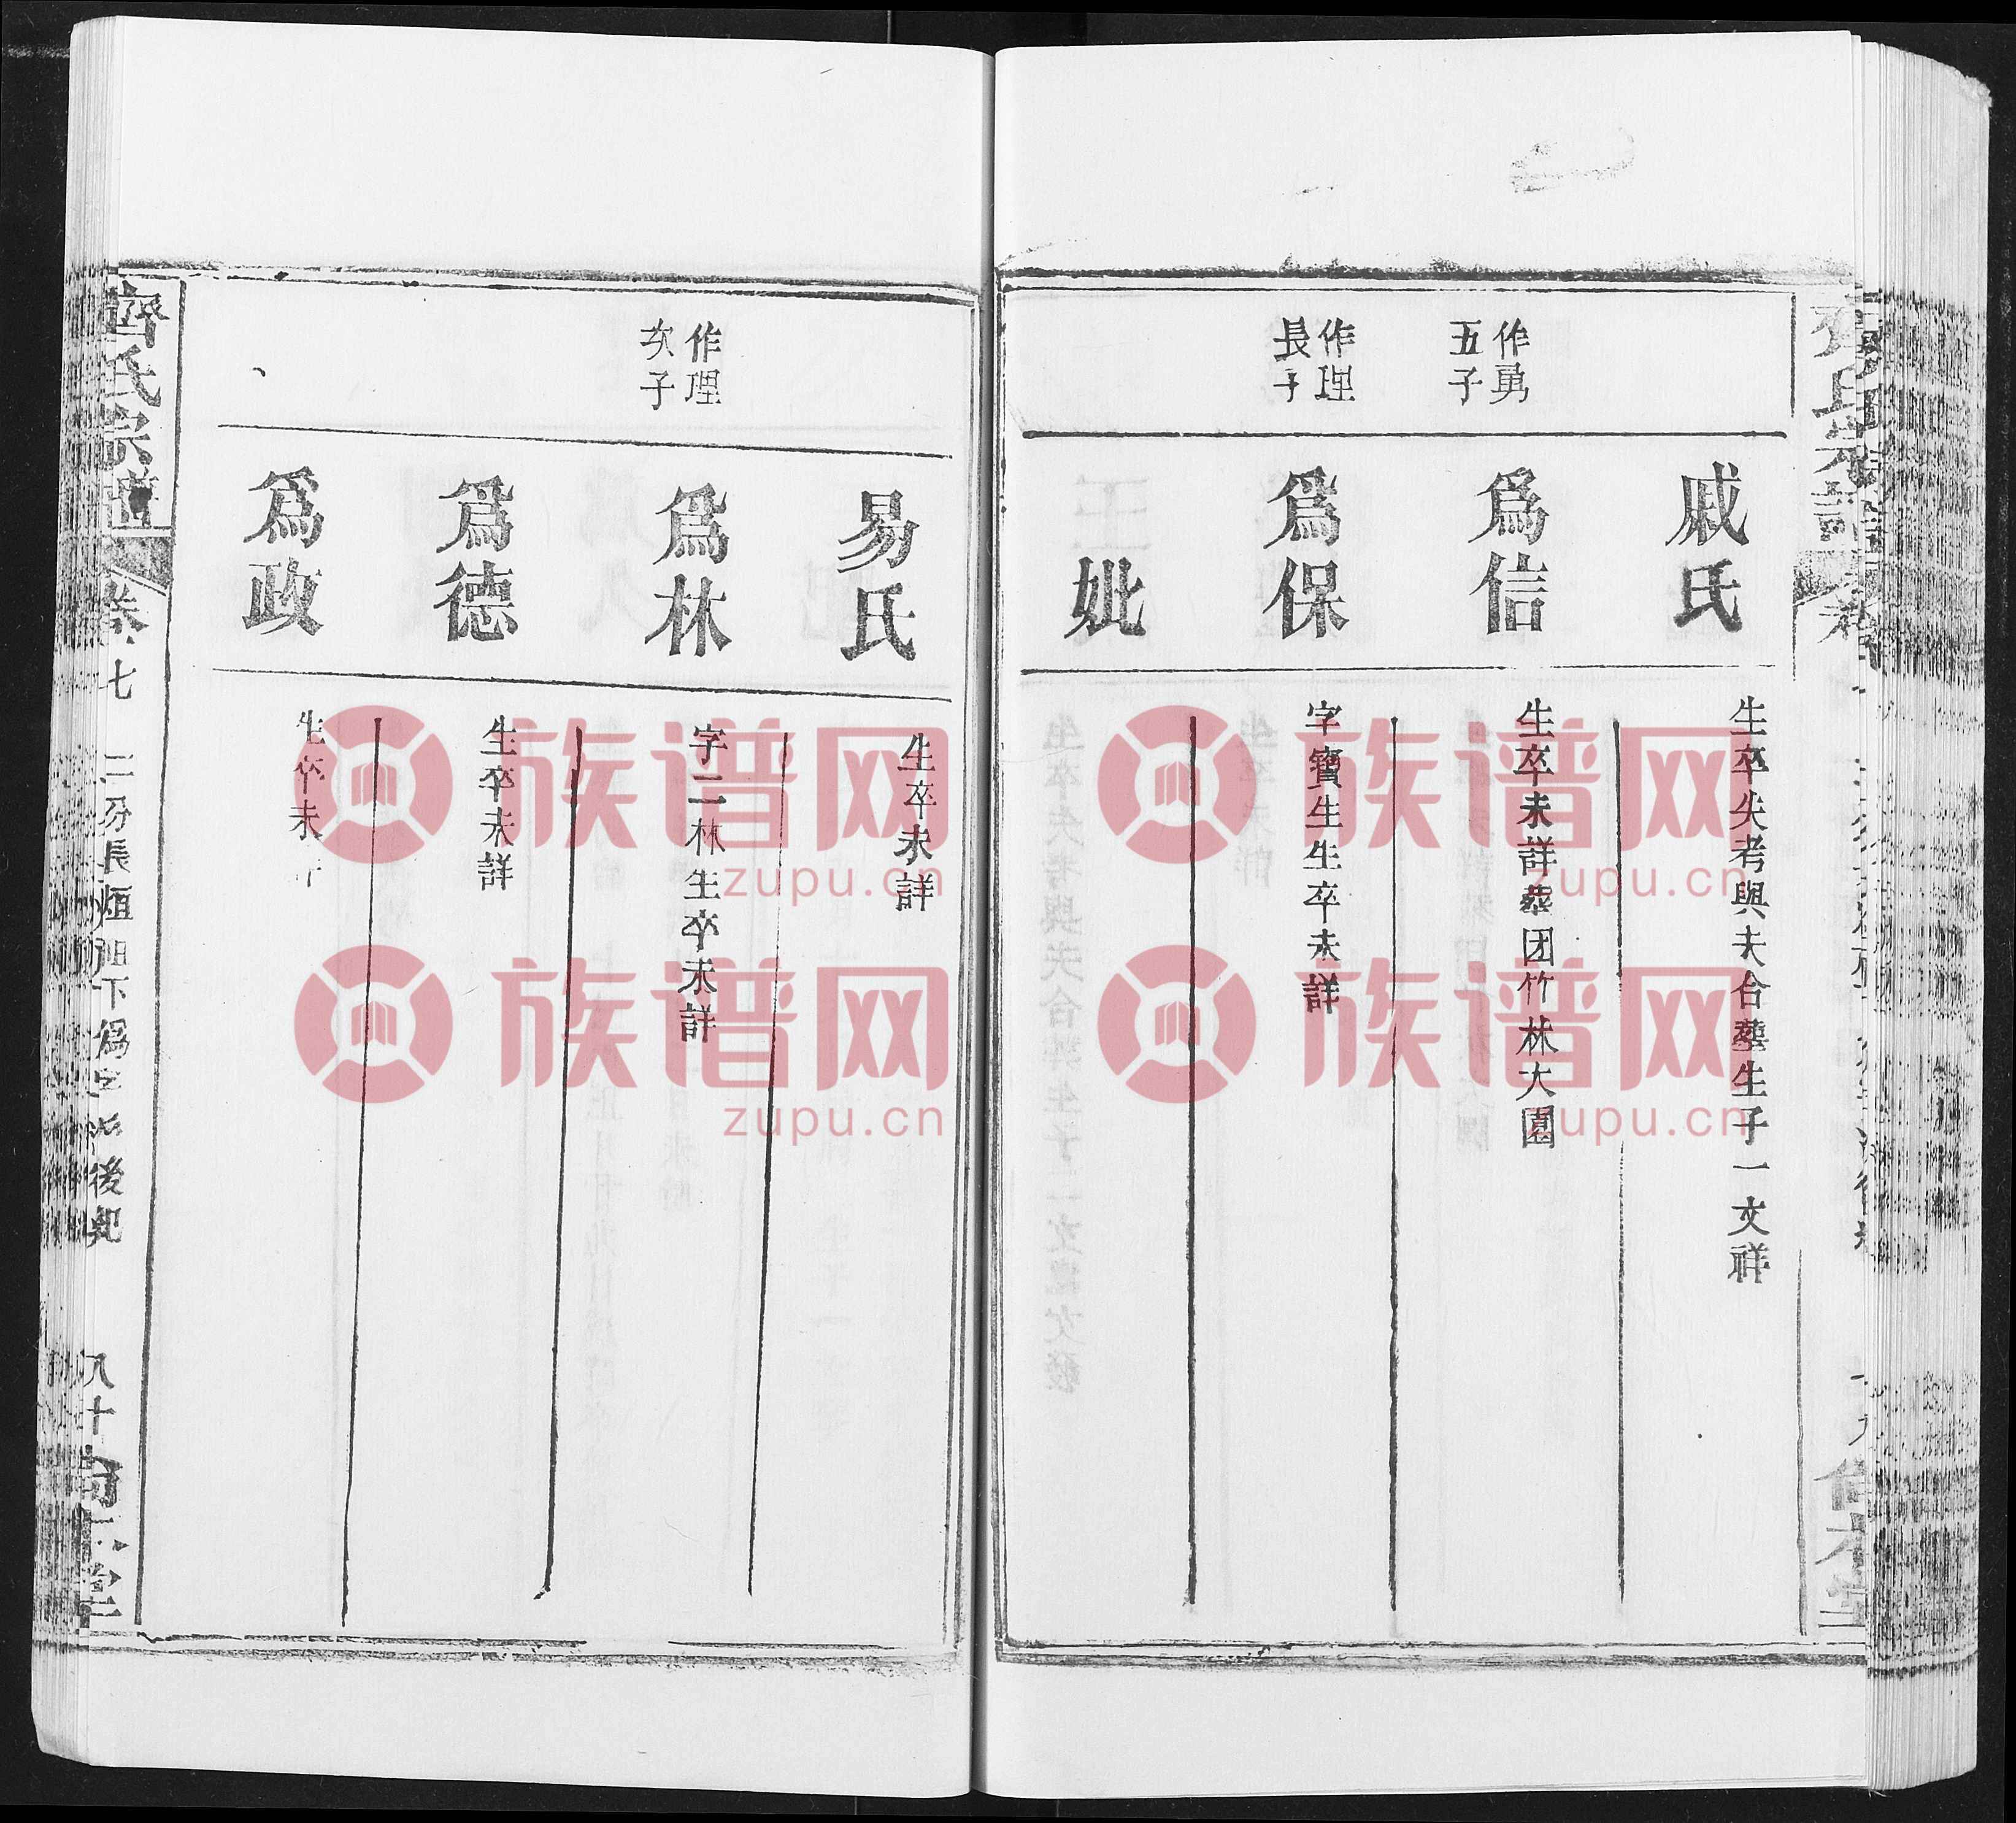 戚氏
生卒失考與夫合葬生子一文祥
作勇
五子
爲信
生卒未詳葬团竹林大園
作理
長子
爲保
字寶生生卒未詳
妣
易氏
生卒未詳
作理
次子
爲林
字二林生卒未詳
爲德
生卒未詳
爲政
生卒未
齊氏宗譜
卷七
二房長烜
下爲
後
八十
尚 堂
族谱网
zupu.cn
族谱网
zupu.cn
族谱网
zupu.cn
族谱网
zupu.cn